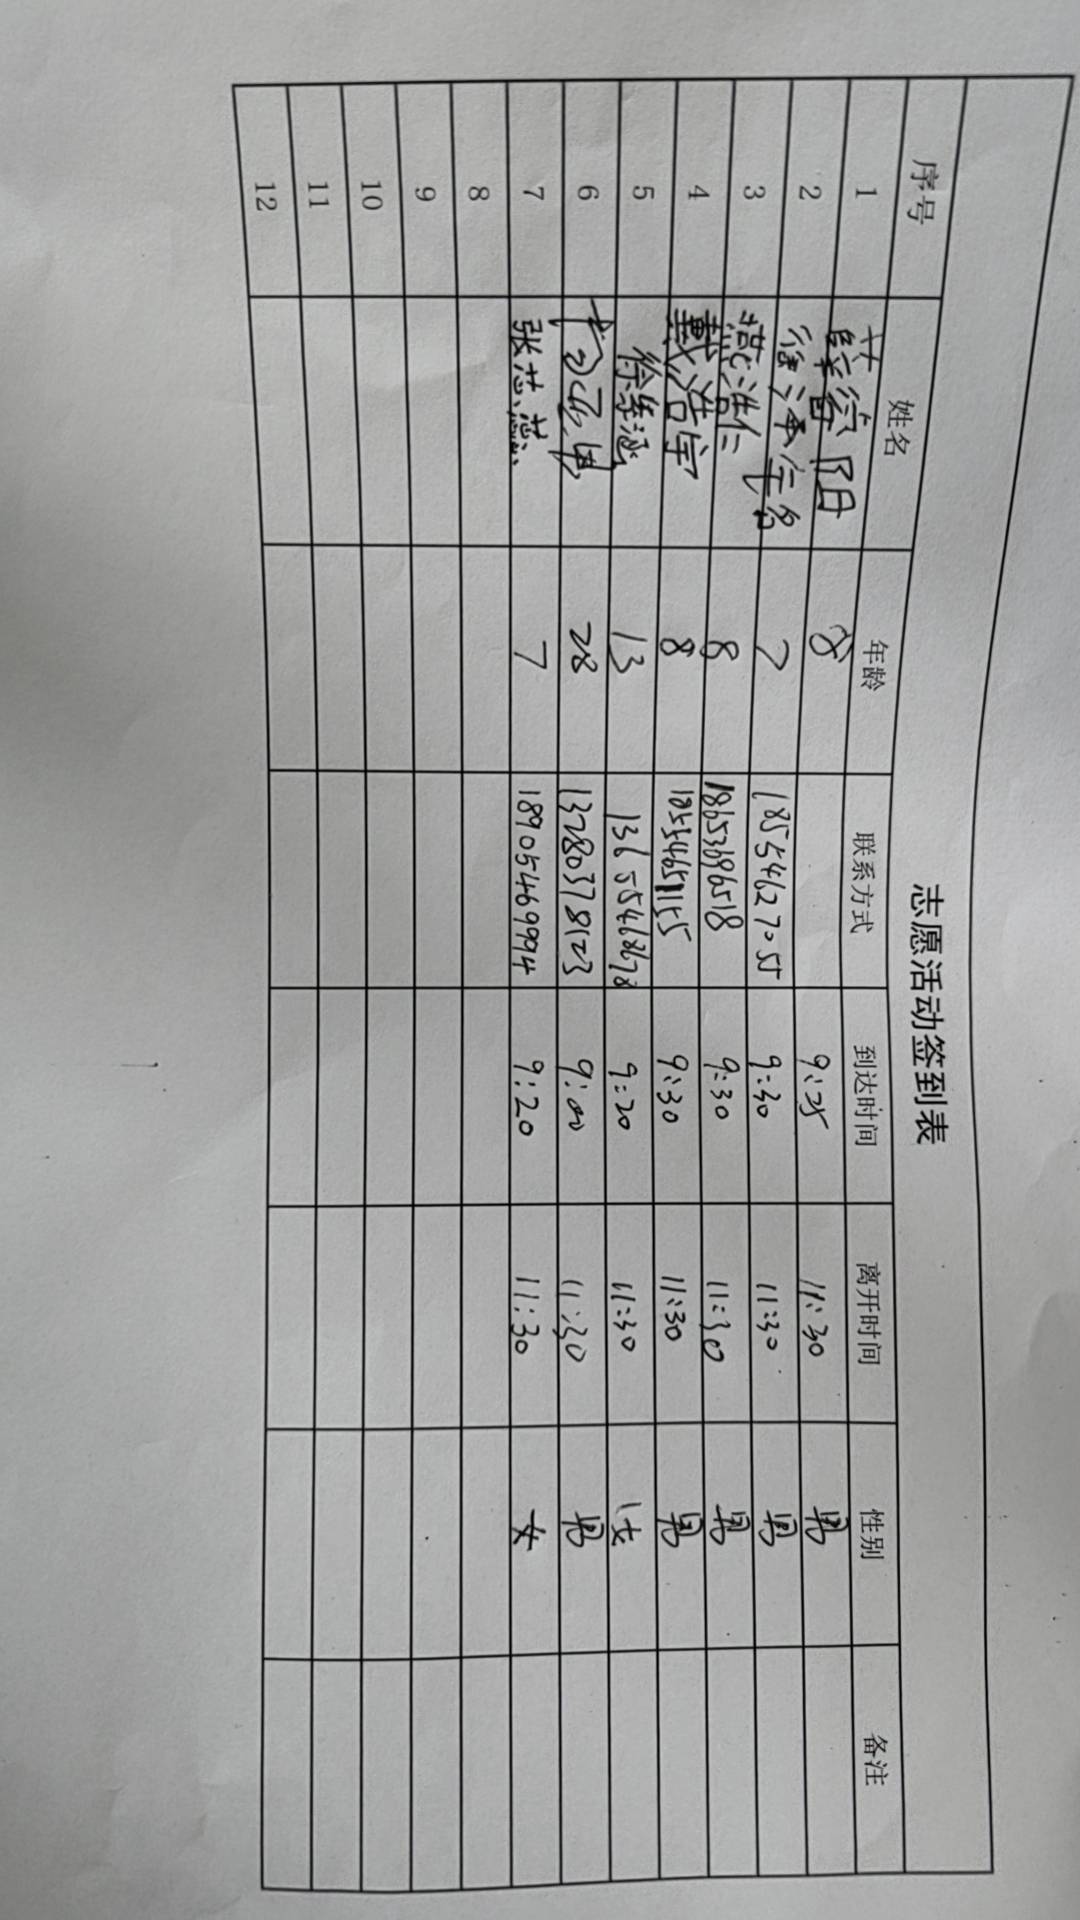 志愿活动签到表
序号 姓名 年龄 联系方式 到达时间 离开时间 性别 备注
1 8 9:25 11:30 男
2 7 18554627055 9:30 11:30 男
3 燕浩仁 8 18653696518 9:30 11:30 男
4 戴浩宇 8 18554651155 9:30 11:30 男
5 徐绘涵 13 13655468678 9:20 11:30 女
6 28 13780378123 9:00 11:30 男
7 张芯蕊 7 18905469994 9:20 11:30 女
8
9
10
11
12